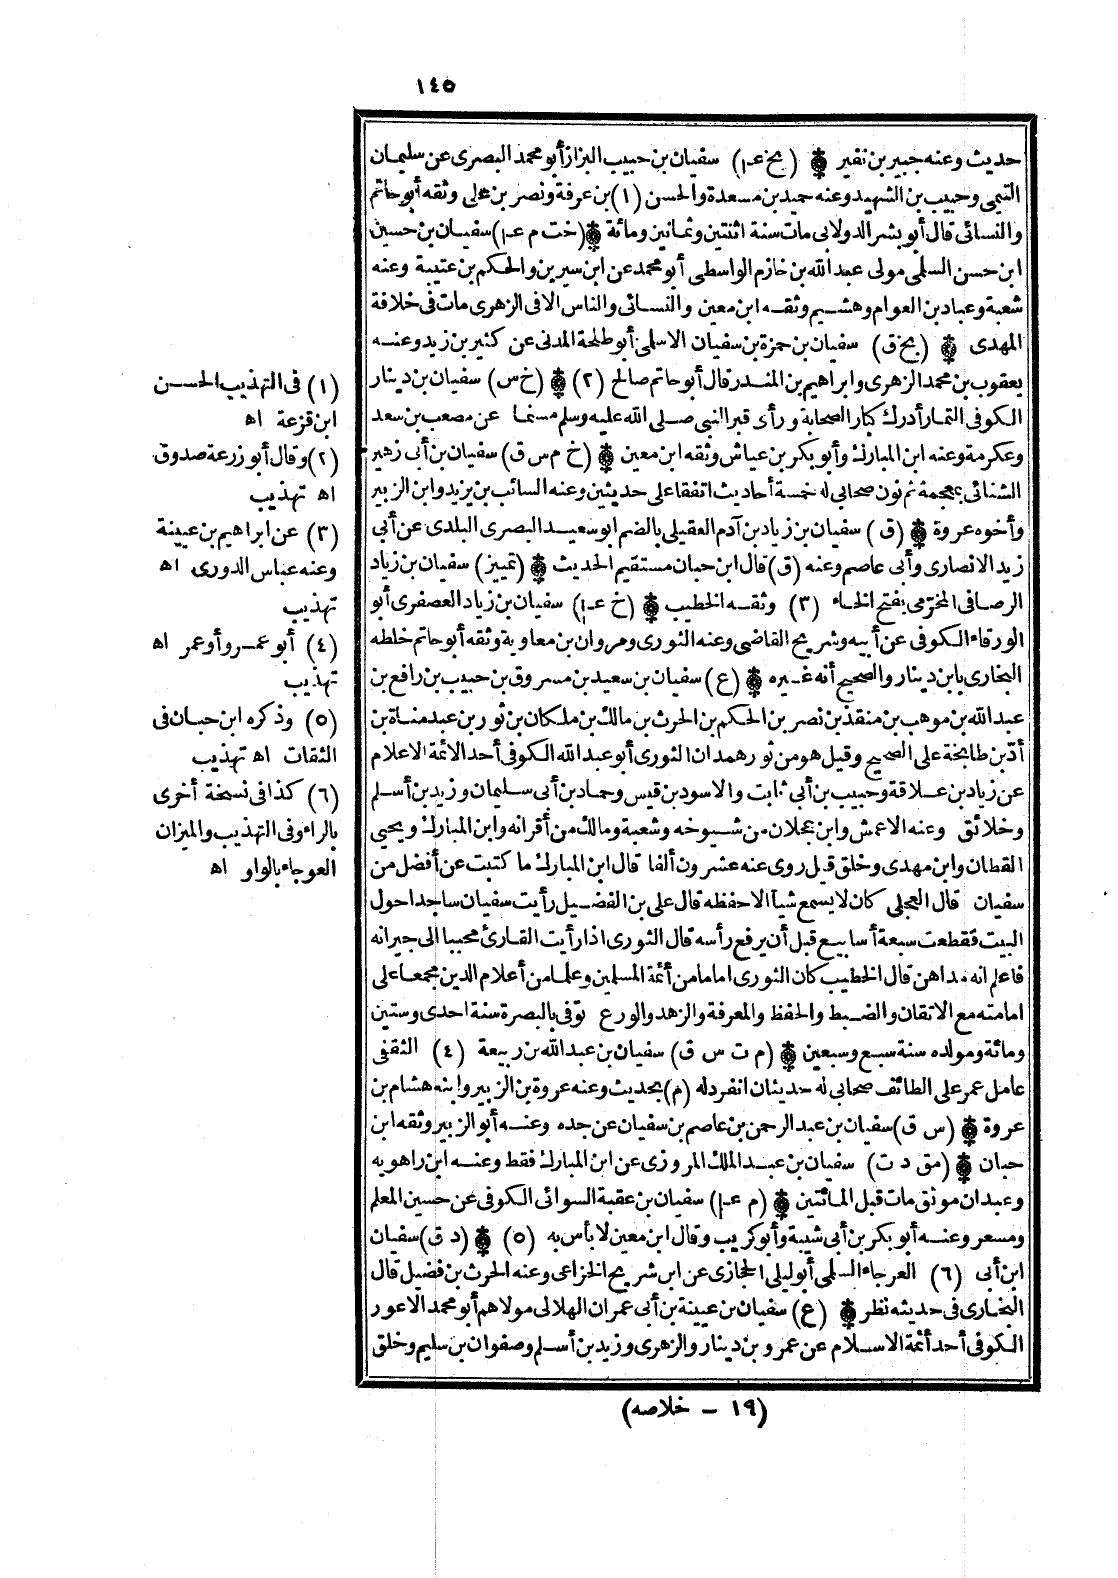 ١٤٥
حديث وعنه جبير بن نفير ۞ (بخ عـا) سفيان بن حبيب البزاز أبو محمد البصرى عن سليمان
التيمى وحبيب بن الشهيد وعنه حميد بن مسعدة والحسن (١) بن عرفة ونصر بن على وثقه أبو حاتم
والنسائى قال أبو بشر الدولابى مات سنة اثنتين وثمانين ومائة ۞ (خت م عـا) سفيان بن حسين
ابن حسن السلمى مولى عبد الله بن خازم الواسطى أبو محمد عن ابن سيرين والحكم بن عتيبة وعنه
شعبة وعباد بن العوام وهشيم وثقه ابن معين والنسائى والناس الا فى الزهرى مات فى خلافة
المهدى ۞ (بخ ق) سفيان بن حمزة بن سفيان الاسلمى أبو طلحة المدنى عن كثير بن زيد وعنه
يعقوب بن محمد الزهرى وابراهيم بن المنذر قال أبو حاتم صالح (٢) ۞ (خ س) سفيان بن دينار
الكوفى التمار أدرك كبار الصحابة ورأى قبر النبى صلى الله عليه وسلم مسنما عن مصعب بن سعد
وعكرمة وعنه ابن المبارك وأبو بكر بن عياش وثقه ابن معين ۞ (خ م س ق) سفيان بن أبى زهير
الشنائى بمعجمة ثم نون صحابى له خمسة أحاديث اتفقا على حديثين وعنه السائب بن يزيد وابن الزبير
وأخوه عروة ۞ (ق) سفيان بن زياد بن آدم العقيلى بالضم ابو سعيد البصرى البلدى عن أبى
زيد الانصارى وأبى عاصم وعنه (ق) قال ابن حبان مستقيم الحديث ۞ (تمييز) سفيان بن زياد
الرصافى المخرّمى بفتح الخاء (٣) وثقه الخطيب ۞ (خ عـا) سفيان بن زياد العصفرى أبو
الورقاء الكوفى عن أبيه وشريح القاضى وعنه الثورى ومروان بن معاوية وثقه أبو حاتم خلطه
البخارى بابن دينار والصحيح أنه غيره ۞ (ع) سفيان بن سعيد بن مسروق بن حبيب بن رافع بن
عبد الله بن موهب بن منقذ بن نصر بن الحكم بن الحرث بن مالك بن ملكان بن ثور بن عبد مناة بن
أدّ بن طابخة على الصحيح وقيل هو من ثور همدان الثورى أبو عبد الله الكوفى أحد الائمة الاعلام
عن زياد بن علاقة وحبيب بن أبى ثابت والاسود بن قيس وحماد بن أبى سليمان وزيد بن أسلم
وخلائق وعنه الاعمش وابن عجلان من شيوخه وشعبة ومالك من أقرانه وابن المبارك ويحيى
القطان وابن مهدى وخلق قيل روى عنه عشرون ألفا قال ابن المبارك ما كتبت عن أفضل من
سفيان قال العجلى كان لا يسمع شيأ الا حفظه قال على بن الفضيل رأيت سفيان ساجدا حول
البيت فقطعت سبعة أسابيع قبل أن يرفع رأسه قال الثورى اذا رأيت القارئ محببا الى جيرانه
فاعلم انه مداهن قال الخطيب كان الثورى اماما من أئمة المسلمين وعلما من أعلام الدين مجمعا على
امامته مع الاتقان والضبط والحفظ والمعرفة والزهد والورع توفى بالبصرة سنة احدى وستين
ومائة ومولده سنة سبع وسبعين ۞ (م ت س ق) سفيان بن عبد الله بن ربيعة (٤) الثقفى
عامل عمر على الطائف صحابى له حديثان انفرد له (م) بحديث وعنه عروة بن الزبير وابنه هشام بن
عروة ۞ (س ق) سفيان بن عبد الرحمن بن عاصم بن سفيان عن جده وعنه أبو الزبير وثقه ابن
حبان ۞ (مق د ت) سفيان بن عبد الملك المروزى عن ابن المبارك فقط وعنه ابن راهويه
وعبدان موثق مات قبل المائتين ۞ (م عـا) سفيان بن عقبة السوائى الكوفى عن حسين المعلم
ومسعر وعنه أبو بكر بن أبى شيبة وأبو كريب وقال ابن معين لا بأس به (٥) ۞ (د ق) سفيان
ابن أبى (٦) العرجاء السلمى أبو ليلى الحجازى عن ابن شريح الخزاعى وعنه الحرث بن فضيل قال
البخارى فى حديثه نظر ۞ (ع) سفيان بن عيينة بن أبى عمران الهلالى مولاهم أبو محمد الاعور
الكوفى أحد أئمة الاسلام عن عمرو بن دينار والزهرى وزيد بن أسلم وصفوان بن سليم وخلق
(١) فى التهذيب الحسن
ابن قزعة اه
(٢) وقال أبو زرعة صدوق
اه تهذيب
(٣) عن ابراهيم بن عيينة
وعنه عباس الدورى اه
تهذيب
(٤) أبو عمرو أو عمر اه
تهذيب
(٥) وذكره ابن حبان فى
الثقات اه تهذيب
(٦) كذا فى نسخة أخرى
بالراء وفى التهذيب والميزان
العوجاء بالواو اه
(١٩ – خلاصه)